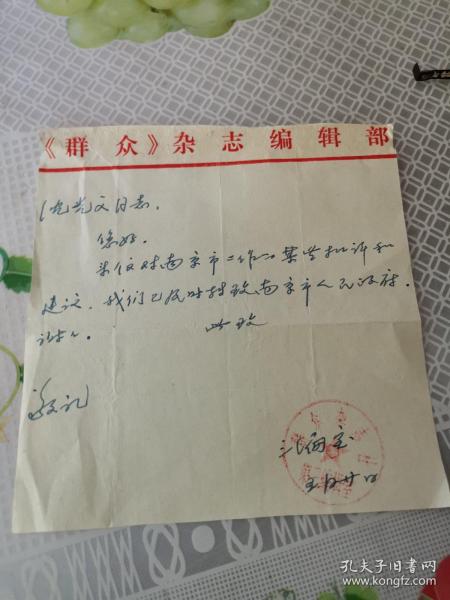 《群众》杂志编辑部
同志。
您好。
来信对南京市工作的某些批评和
建议，我们已及时转致南京市人民政府。
谢谢。 此致
敬礼
孔夫子旧书网
www.kongfz.com